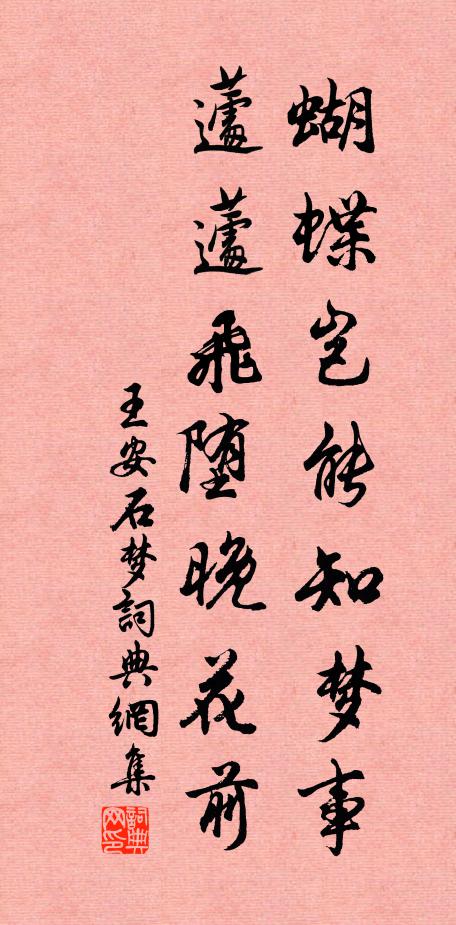 蝴蝶岂能知梦事
蘧蘧飛堕晚花前
王安石梦詞典網集
詞典网印